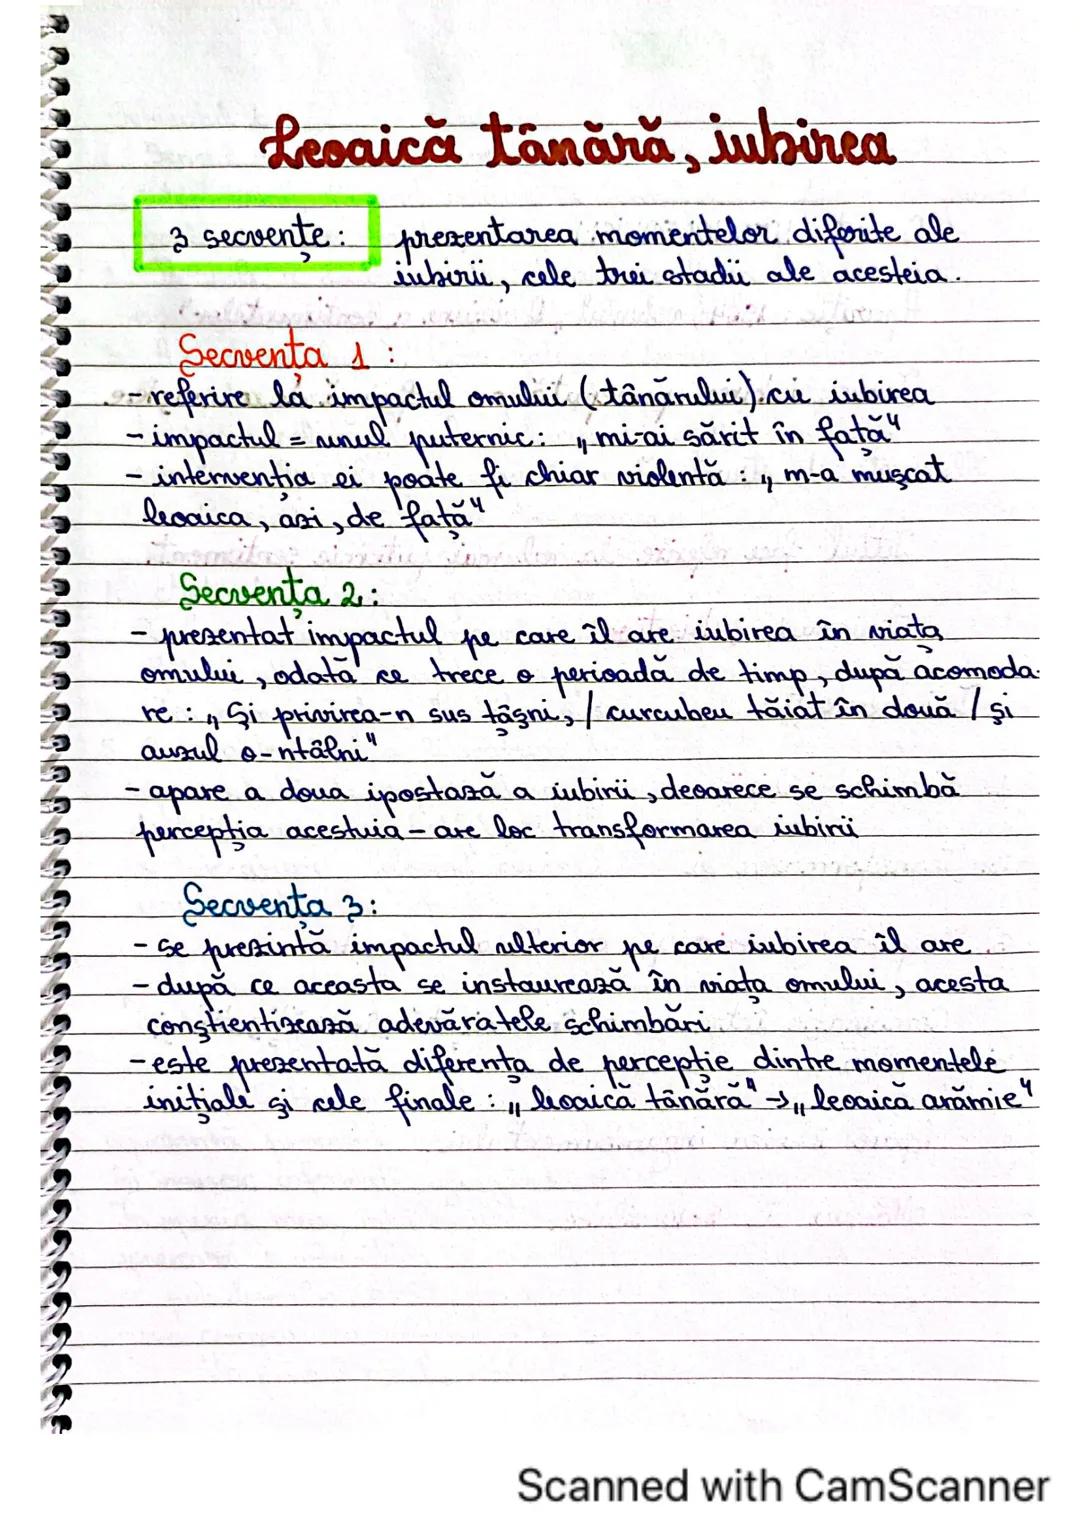 Leoaică tânără, iubirea
3 secvențe: prezentarea momentelor diferite ale
iubirii, cele trei stadii ale acesteia.
Secvența 1:
- referire la impactul omului (tânărului) cu iubirea
- impactul = unul puternic: „mi-ai sărit în față"
- intervenția ei poate fi chiar violentă: „m-a mușcat
leoaica, azi, de față"
Secvența 2:
- prezentat impactul pe care îl are iubirea în viața
omului, odată ce trece o perioadă de timp, după acomoda-
re: „Și privirea-n sus țâșni, / curcubeu tăiat în două / și
auzul o-ntâlni"
- apare a doua ipostază a iubirii, deoarece se schimbă
percepția acestuia - are loc transformarea iubirii
Secvența 3:
- se prezintă impactul ulterior pe care iubirea îl are
- după ce aceasta se instaurează în viața omului, acesta
conștientizează adevăratele schimbări
- este prezentată diferența de percepție dintre momentele
inițiale și cele finale: „leoaică tânără" → „leoaică arămie"
Scanned with CamScanner